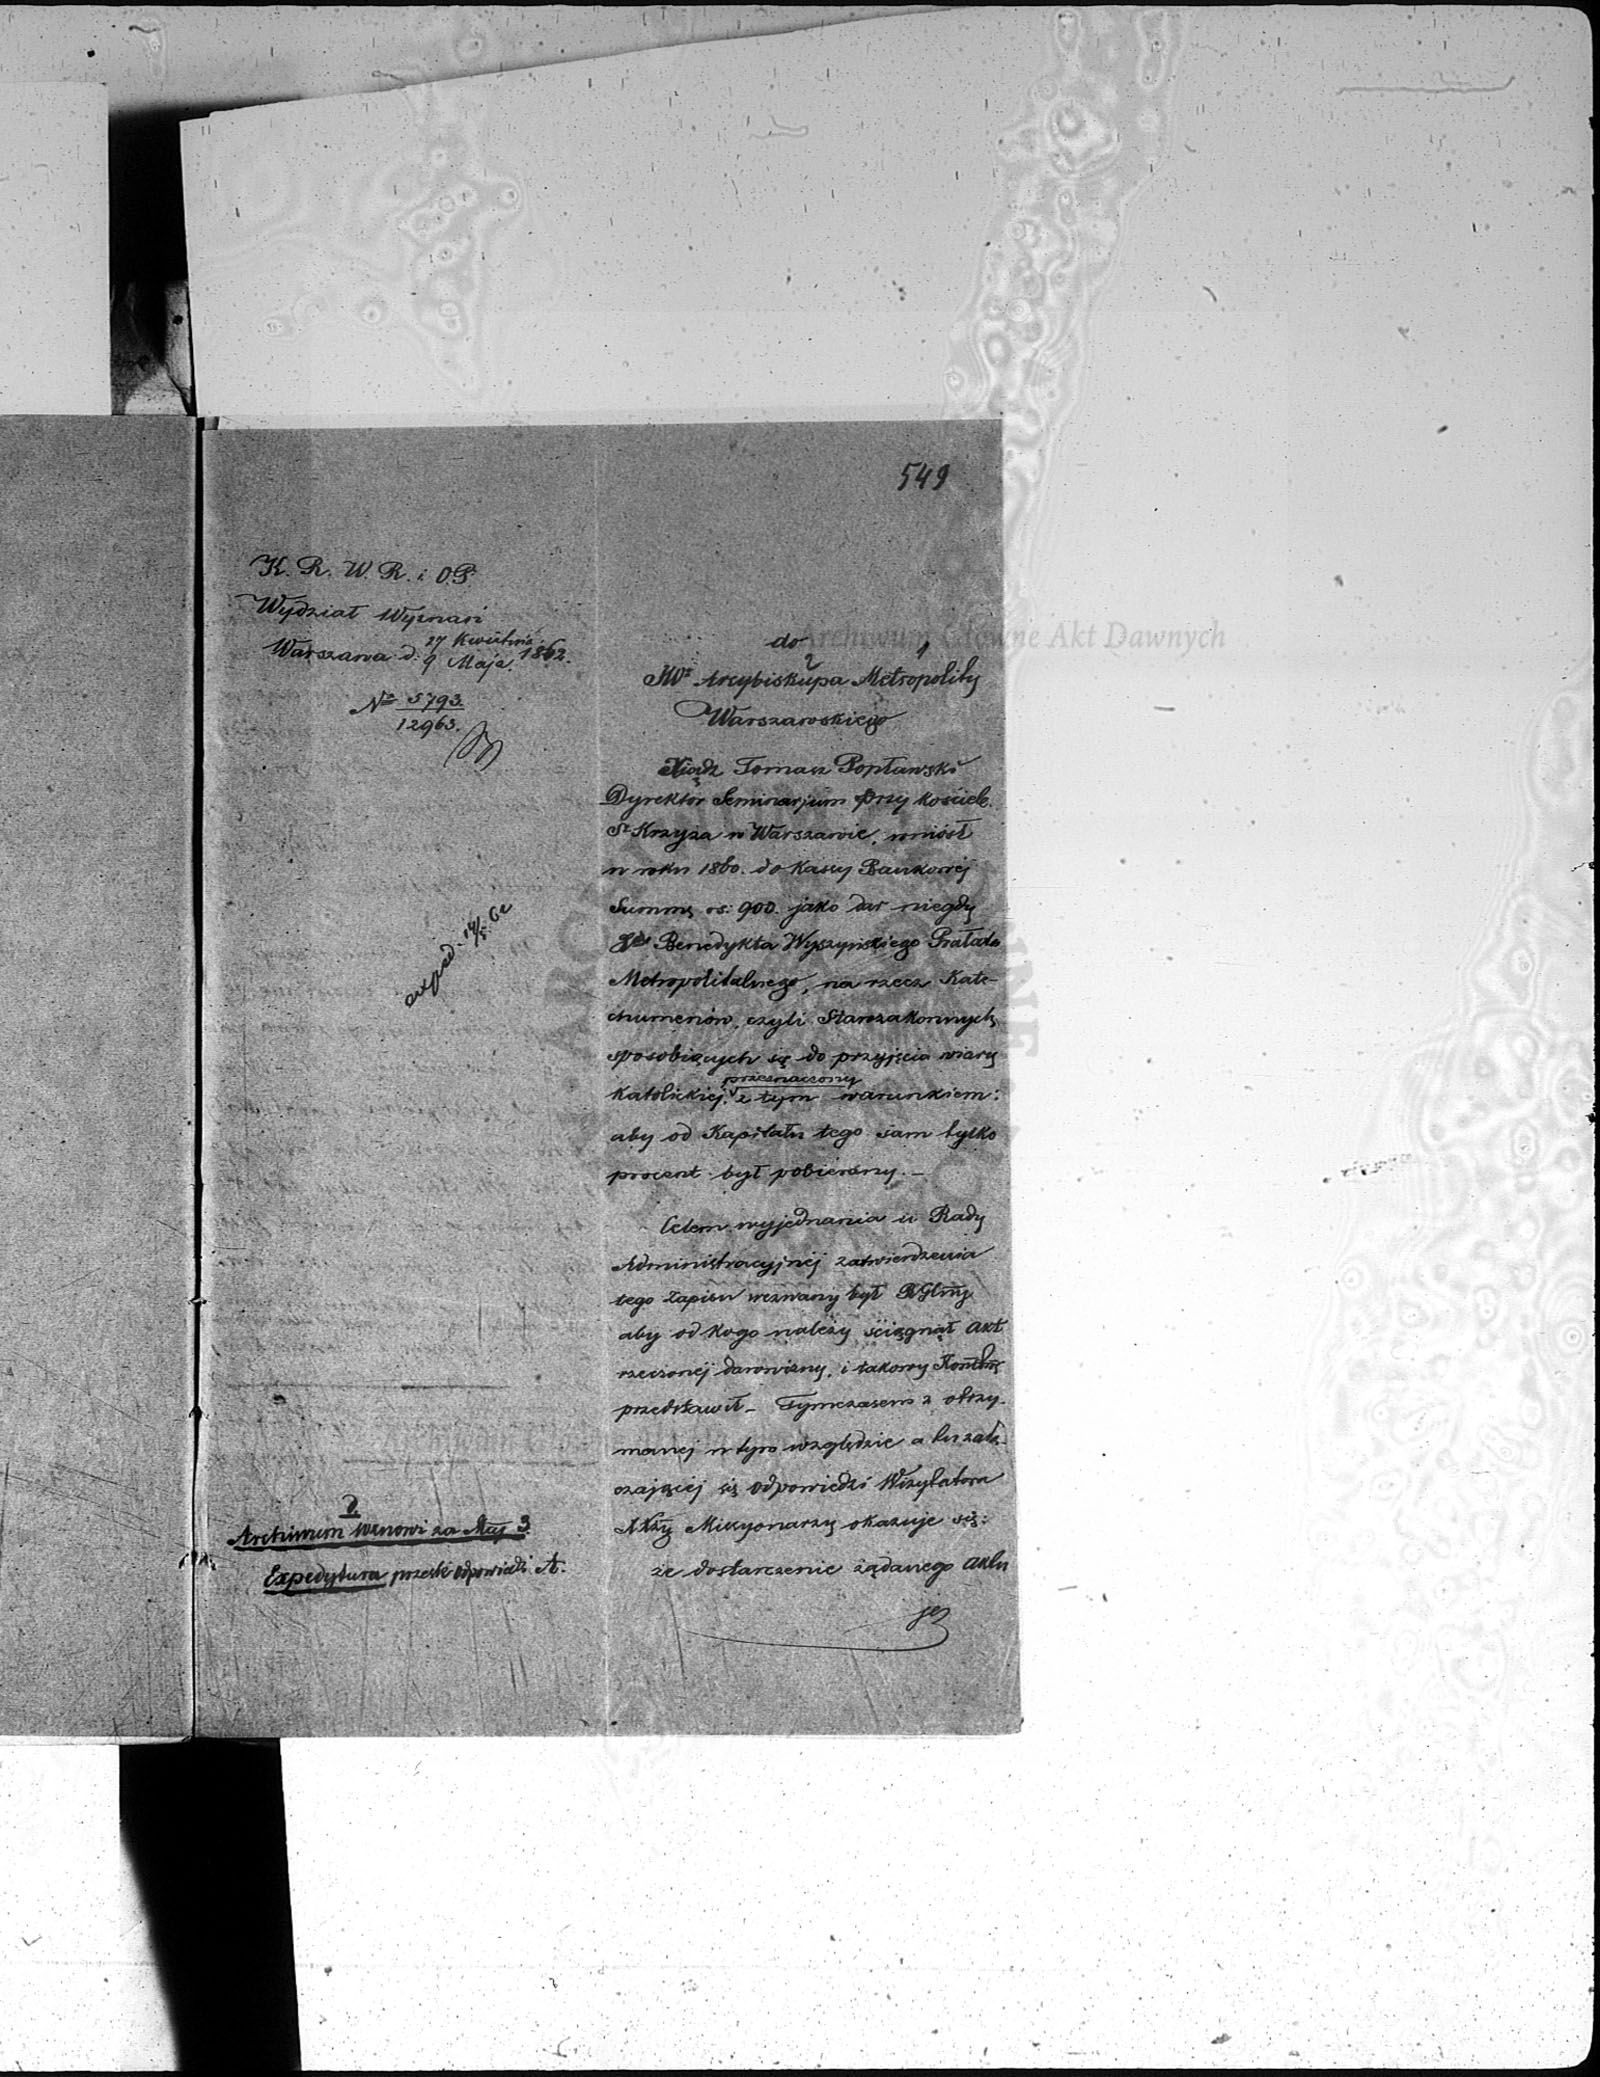 549
K. R. W. R. i O. P.
Wydział Wyznań
Warszawa d. 27 Kwietnia 9 Maja 1862.
No 5793.
12963.
exped. 14/5 62
do
JWo Arcybiskupa Metropolity
Warszawskiego
Xiądz Tomasz Popławski
Dyrektor Seminarjum przy kościele
St Krzyża w Warszawie, wniósł
w roku 1860. do Kassy Bankowej
Summę rs. 900. jako dar niegdy
Benedykta Wyszyńskiego Prałata
Metropolitalnego, na rzecz Kate-
chumenów, czyli Starozakonnych
sposobiących się do przyjęcia wiary
przeznaczony
Katolickiej, z tym warunkiem:
aby od Kapitału tego sam tylko
procent był pobierany. –
Celem wyjednania u Rady
Administracyjnej zatwierdzenia
tego zapisu wezwany był
aby od kogo należy ściągnął akt
rzeczonej darowizny, i takowy
przedstawił – Tymczasem z otrzy-
manej w tym względzie a tu załą-
czającej się odpowiedzi Wizytatora
XXży Missyonarzy okazuje się:
że dostarczenie żądanego aktu
Archiwum wznowi za Mcy 3
Expedytura prześle odpowiedź
Archiwum Główne Akt Dawnych